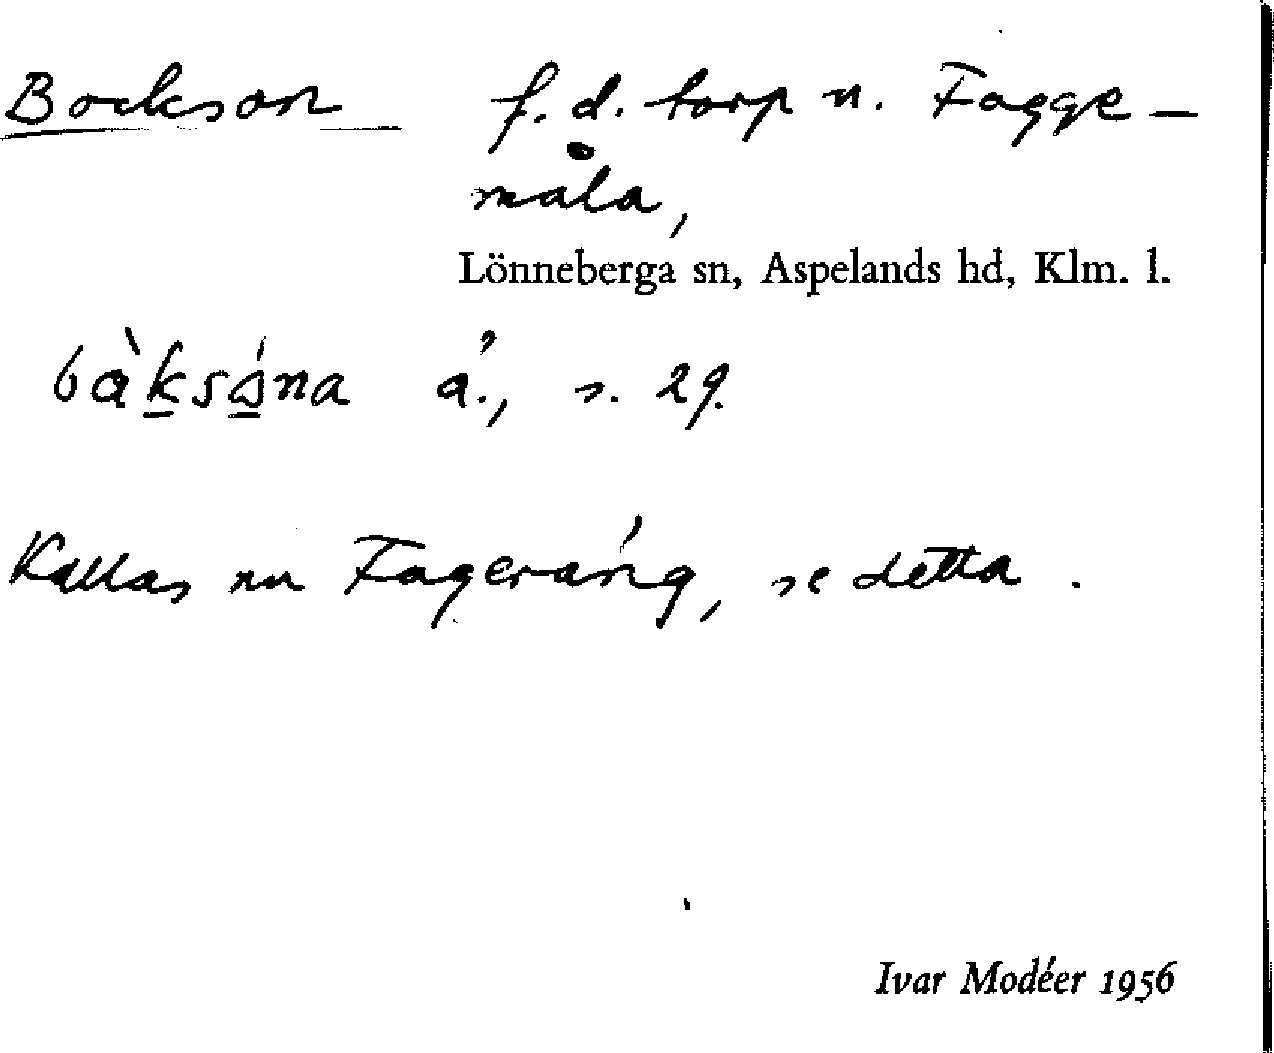 Bockson f. d. torp u. Fagge-
måla,
Lönneberga sn, Aspelands hd, Klm. l.
bàksåna å., s. 29.
Kallas nu Fageräng, se detta.
Ivar Modéer 1956